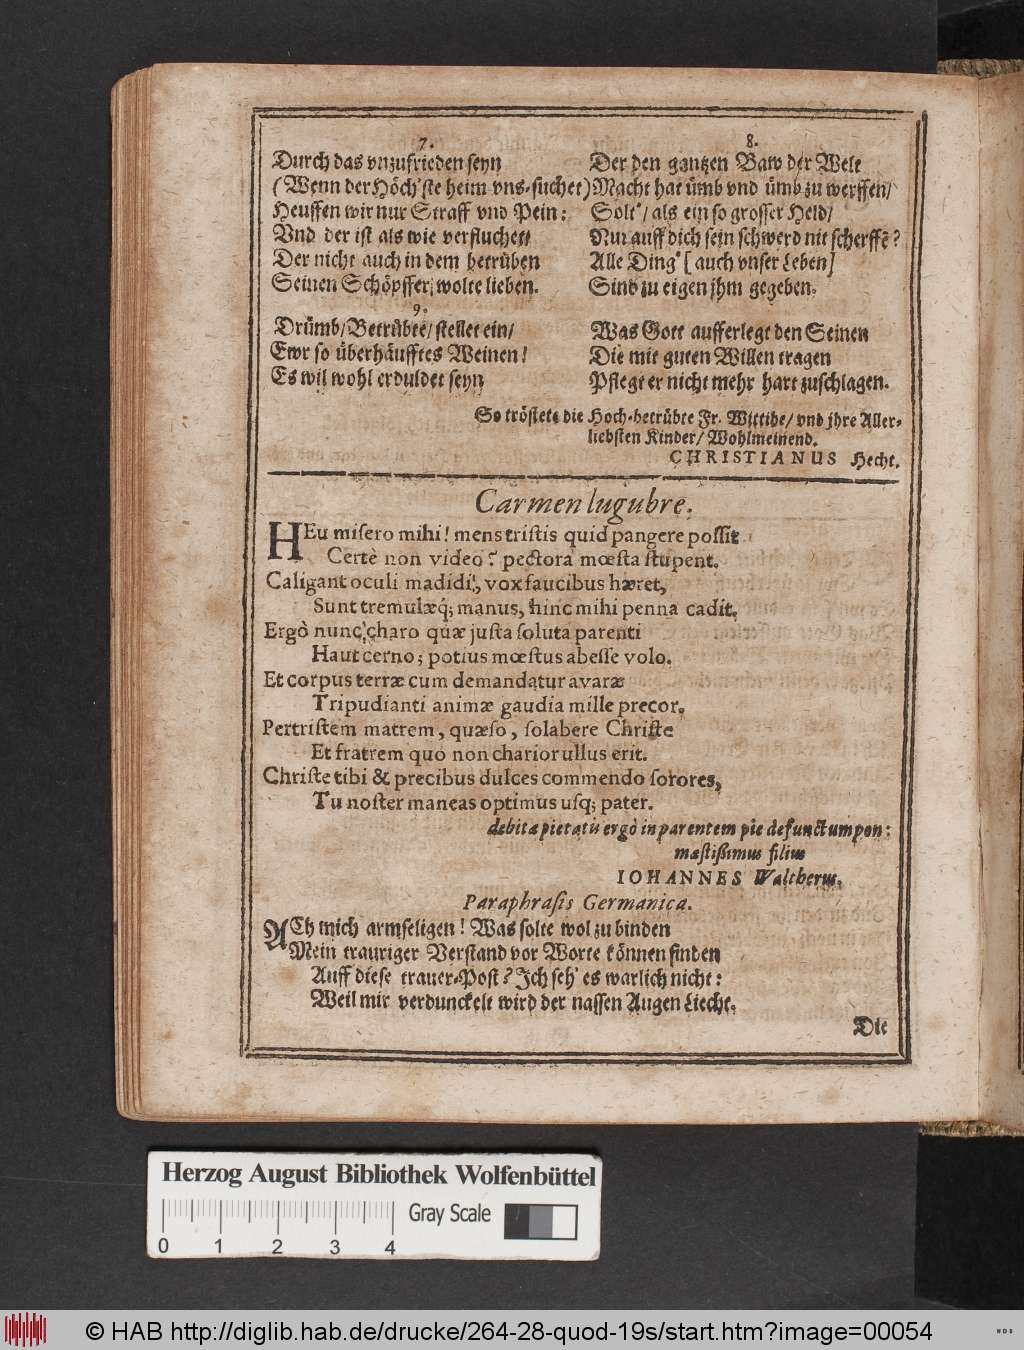 7.
Durch das vnzufrieden seyn
(Wenn der Höch'ste heim vns-suchet)
Heuffen wir nur Straff vnd Pein:
Vnd der ist als wie verfluchet/
Der nicht auch in dem betrüben
Seinen Schöpffer, wolte lieben.
8.
Der den gantzen Baw der Welt
Macht hat ümb vnd ümb zu werffen/
Solt'/ als ein so grosser Held/
Nur auff dich sein schwerd nit scherffẽ?
Alle Ding' [auch vnser Leben]
Sind zu eigen jhm gegeben.
9.
Drümb/Betrübte/stellet ein/
Ewr so überhäufftes Weinen!
Es wil wohl erduldet seyn
Was Gott aufferlegt den Seinen
Die mit guten Willen tragen
Pflegt er nicht mehr hart zuschlagen.
So tröstete die Hoch-betrübte Fr. Wittibe/ vnd jhre Aller-
liebsten Kinder/ Wohlmeinend.
CHRISTIANUS Hecht.
Carmen lugubre.
HEu misero mihi! mens tristis quid pangere possit
Certè non video? pectora mœsta stupent.
Caligant oculi madidi, vox faucibus hæret,
Sunt tremulæq; manus, hinc mihi penna cadit.
Ergò nunc charo quæ justa soluta parenti
Haut cerno; potius mœstus abesse volo.
Et corpus terræ cum demandatur avaræ
Tripudianti animæ gaudia mille precor.
Pertristem matrem, quæso, solabere Christe
Et fratrem quo non charior ullus erit.
Christe tibi & precibus dulces commendo sorores,
Tu noster maneas optimus usq; pater.
debitæ pietatis ergò in parentem piè defunctum pon:
mæstißimus filius
IOHANNES Waltherus.
Paraphrasis Germanica.
ACh mich armseligen! Was solte wol zu binden
Mein trauriger Verstand vor Worte können finden
Auff diese trauer-Post? Ich seh' es warlich nicht:
Weil mir verdunckelt wird der nassen Augen Liecht.
Die
Herzog August Bibliothek Wolfenbüttel
Gray Scale
0 1 2 3 4
© HAB http://diglib.hab.de/drucke/264-28-quod-19s/start.htm?image=00054